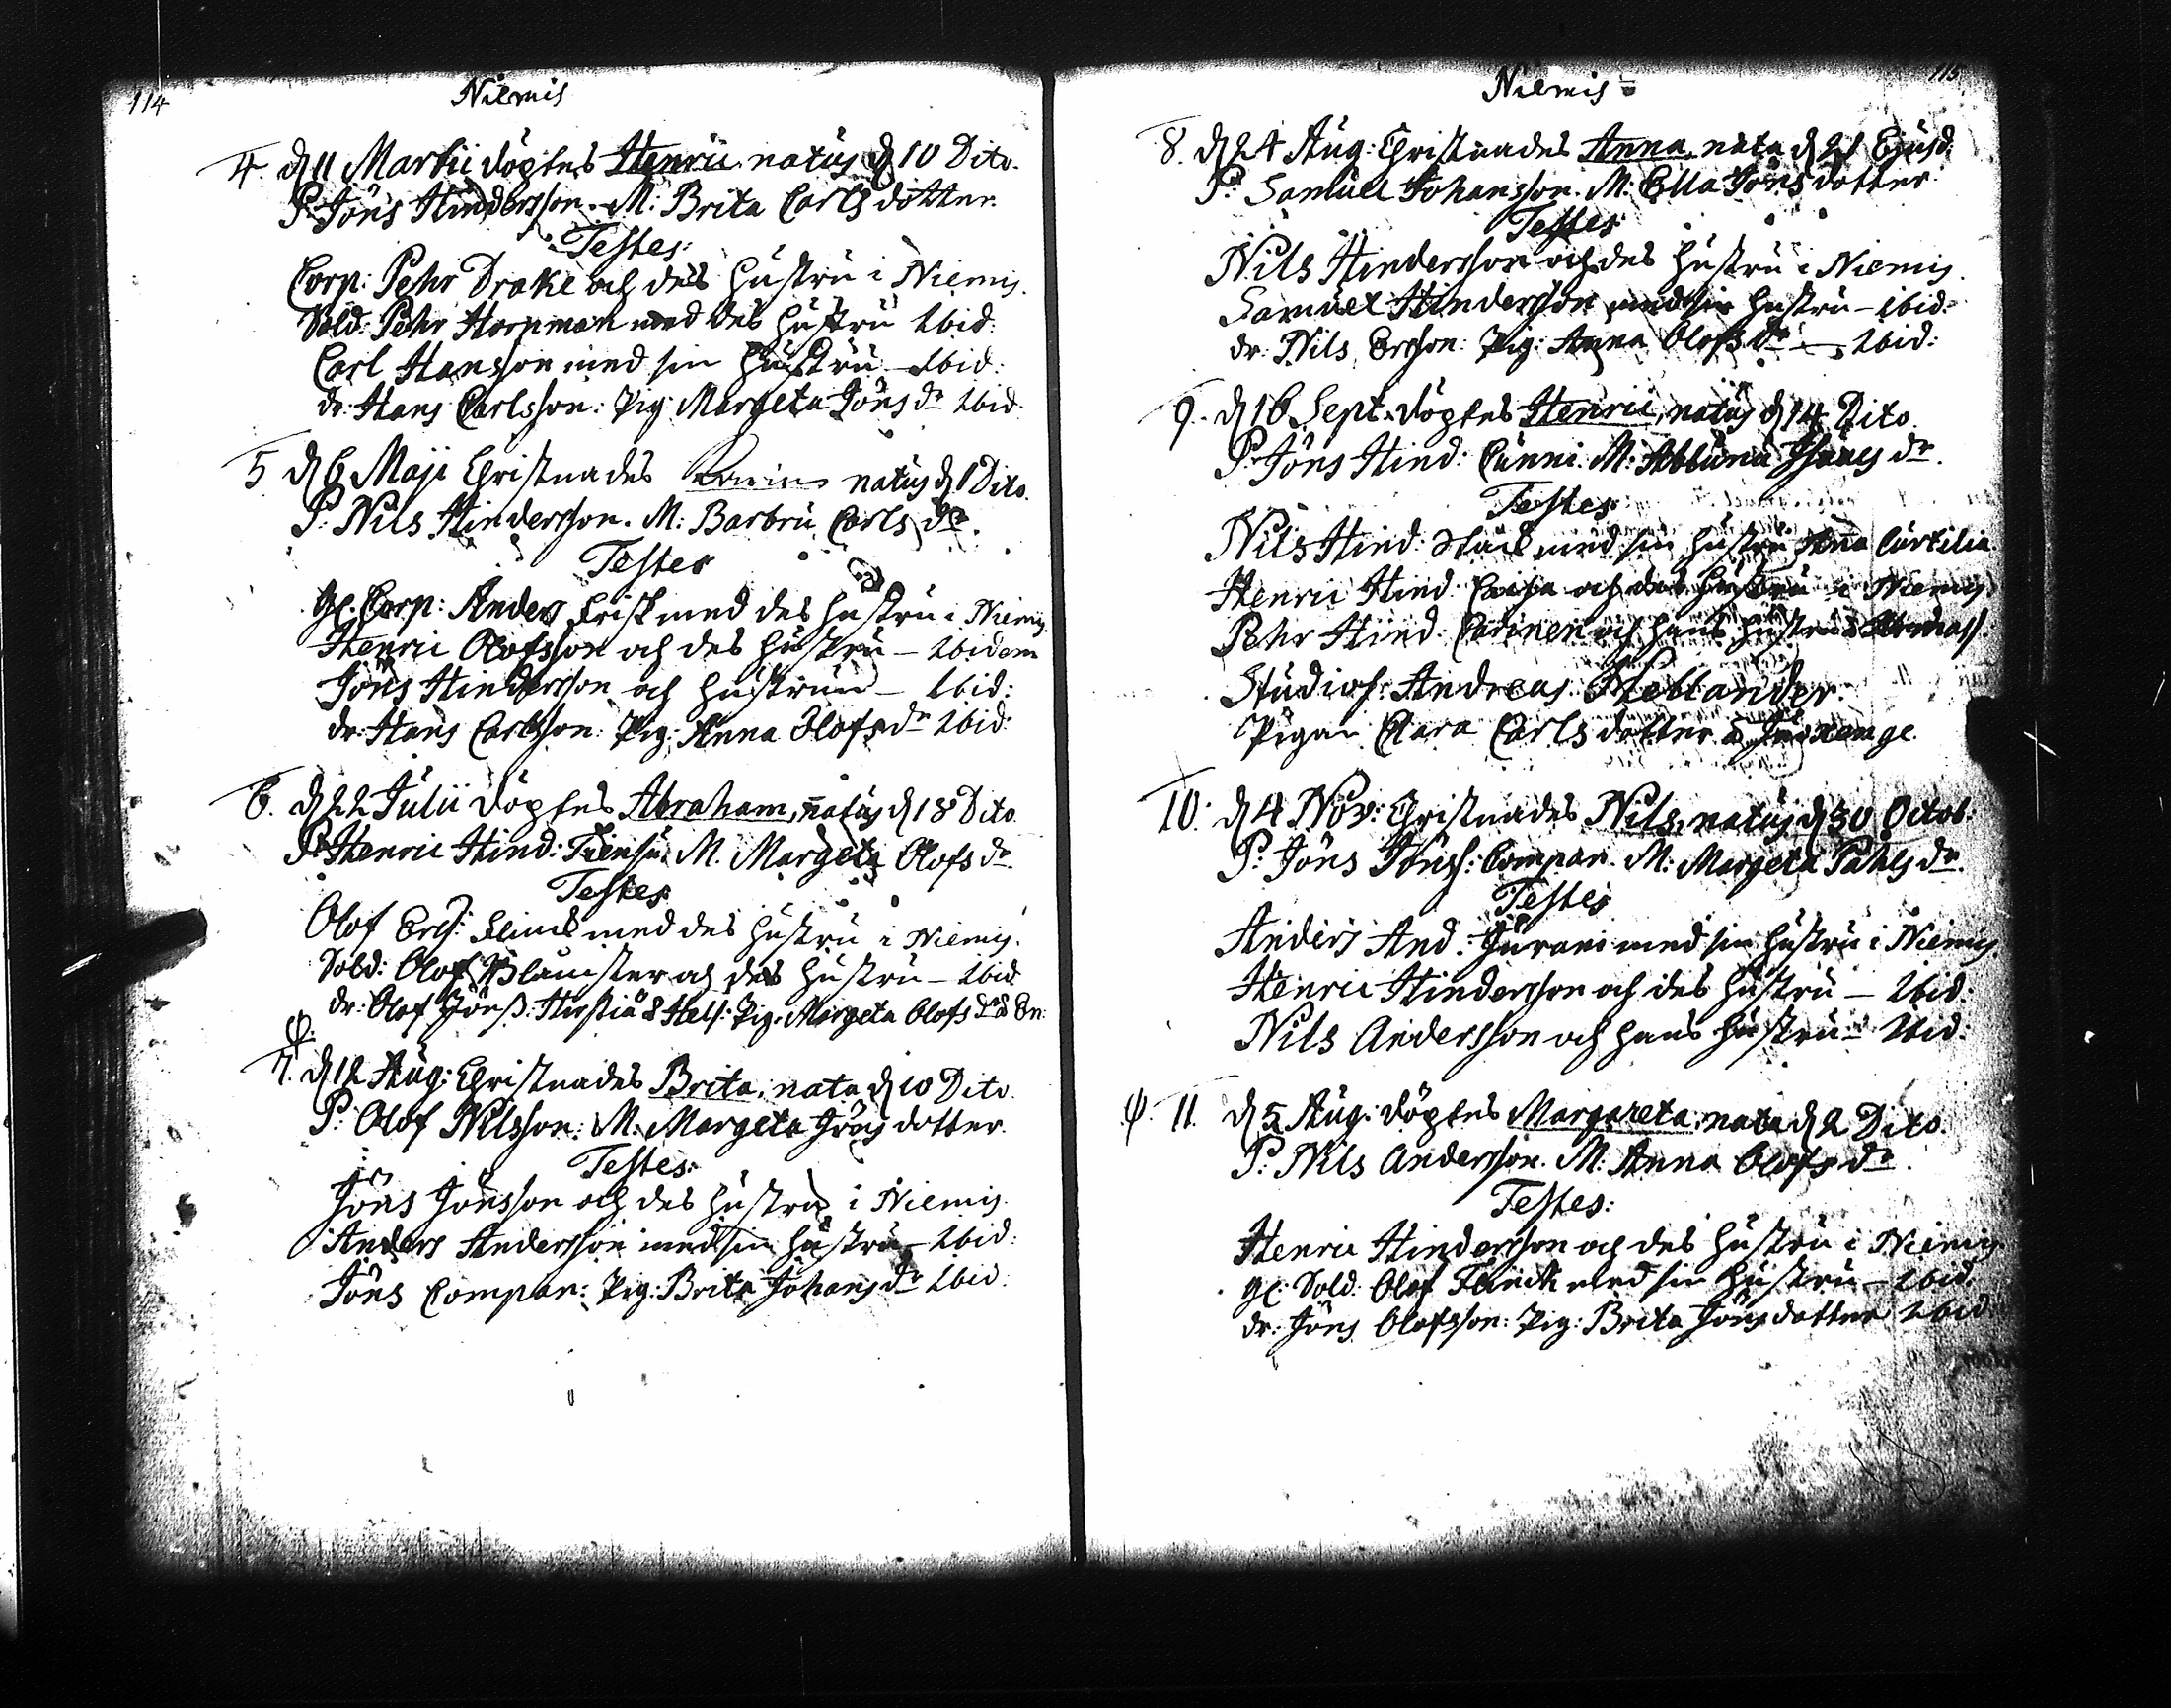 114
Niemis
4. d 11 Martii döptes Henric natus d 10 Dito.
P: Jöns Hindersson. M: Brita Carls dotter.
Testes:
Corp: Pehr Drake och des hustru i Niemis.
Sold: Pehr Horpman med des hustru Ibid:
Carl Hansson med sin hustru – Ibid:
dr: Hans Carlsson: Pig: Margeta Jöns dr Ibid:
5 d 6 Maji Christnades natus d 1 Dito.
P: Nils Hindersson. M: Barbru Carls dr.
Testes
gl. Corp: Anders Frisk med des hustru i Niemis
Henric Olofsson och des hustru – Ibidem
Jöns Hindersson och hustrun – Ibid:
dr: Hans Carlsson: Pig: Anna Olofs dr Ibid:
6. d 22 Julii döptes Abraham, natus d 18 Dito
P: Henric Hind: M. Margeta Olofs dr
Testes
Olof Ersf: Flinck med des hustru i Niemis.
Sold: Olof och des hustru – Ibid
dr: Olof Hels: Pig: Margeta Olofs dr
φ.
7. d 12 Aug: Christnades Brita, nata d 10 Dito.
P: Olof Nilsson: M: Margeta Jöns dotter.
Testes:
Jöns Jönsson och des hustru i Niemis.
Anders Andersson med sin hustru – Ibid:
Jöns Compan: Pig: Brita Johans dr Ibid:
115
Niemis
8. d 24 Aug: Christnades Anna nata d 21 Ejusd:
P: Samuel Johansson. M: Ella Jöns dotter.
Testes
Nils Hindersson och des hustru i Niemis.
Samuel Hindersson med sin hustru – Ibid:
dr: Nils Ersson: Pig: Anna Olofs dr – Ibid:
9. d 16 Sept: döptes Henric, natus d 14 Dito.
P: Jöns Hind: Cunni. M: dr.
Testes:
Nils Hind: med sin hustru Anna
Henric Hind: och des hustru i Niemis
Pehr Hind: och hans hustru
Studios: Andreas Heblander.
Pigan Clara Carls dotter
10. d 4 Nov: Christnades Nils, natus d 30 Octob:
P: Jöns Jönss: Compan. M: Margeta Pahls dr.
Testes
Anders And: Jurani med sin hustru i Niemis.
Henric Hindersson och des hustru – Ibid:
Nils Andersson och hans hustru – Ibid:
φ. 11. d 5 Aug: döptes Margareta, nata d 2 Dito.
P: Nils Andersson. M: Anna Olofs dr.
Testes:
Henric Hindersson och des hustru i Niemis
gl: Sold: Olof Flinck med sin hustru – Ibid.
dr: Jöns Olofsson: Pig: Brita Jöns dotter Ibid